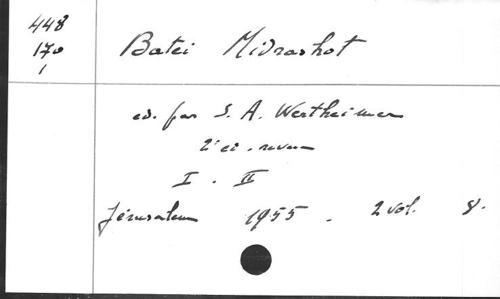 448
170
1
Batei Midrashot
ed. par S. A. Wertheimer
2e ed. revue
I. II
Jérusalem 1955. 2 vol. 8.